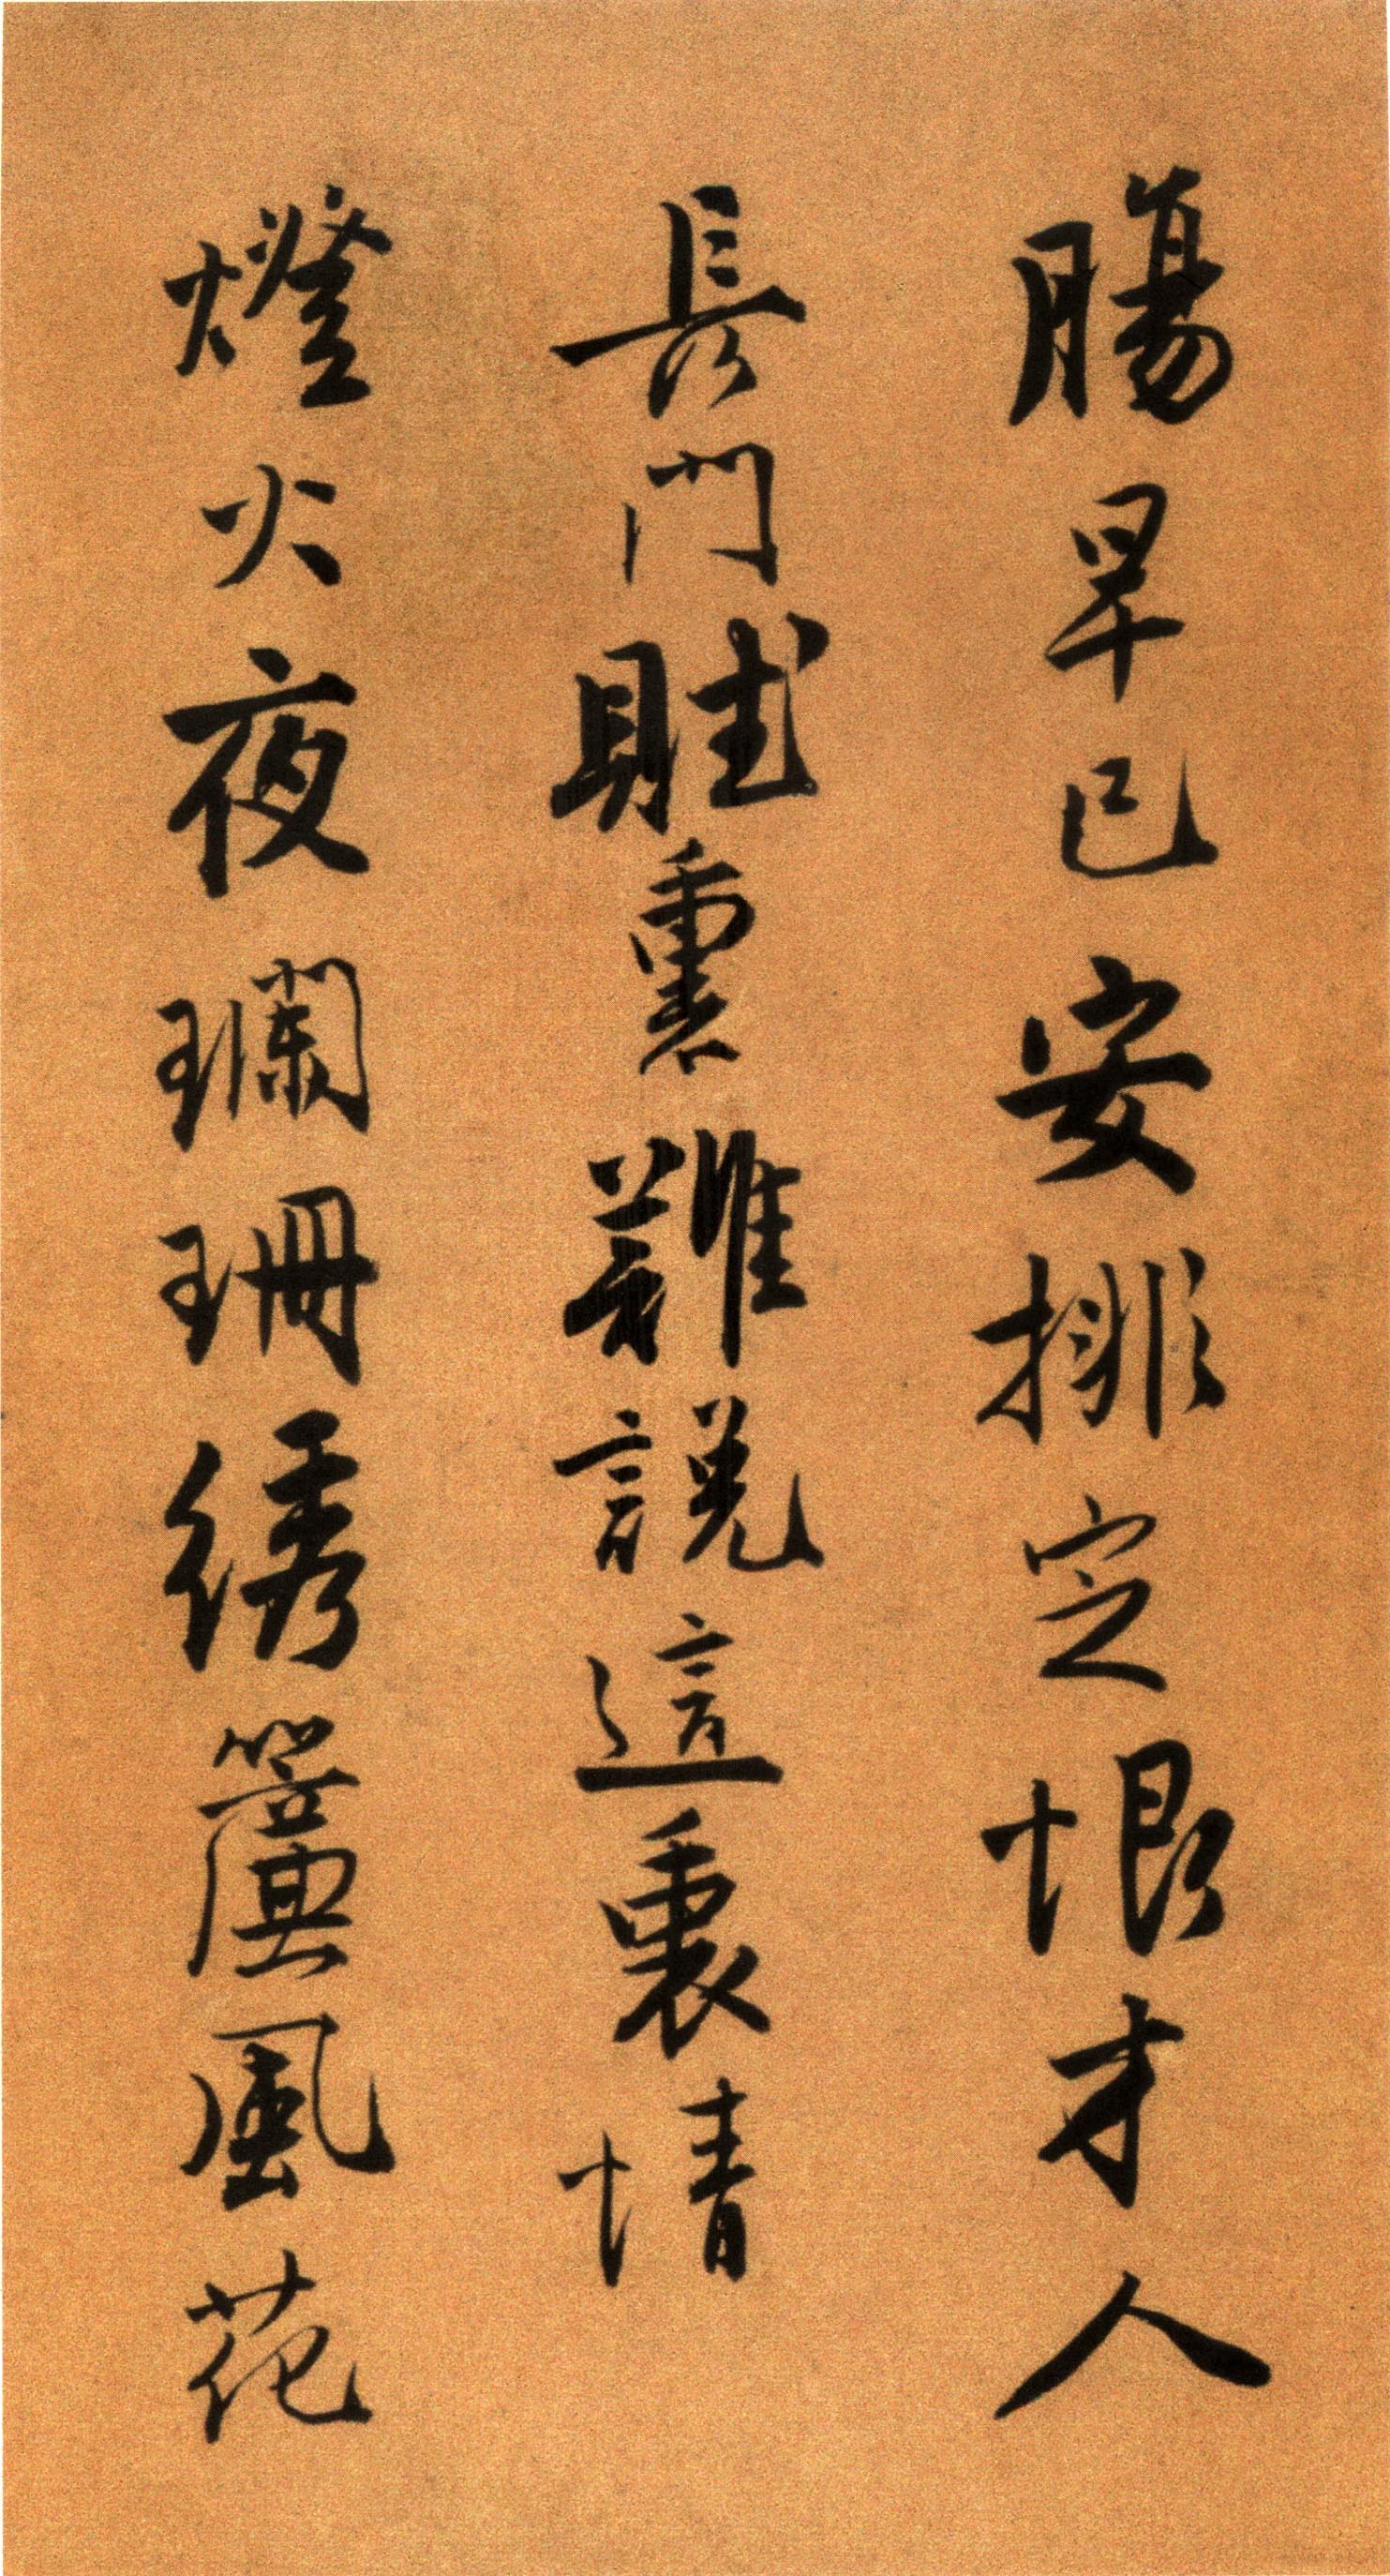 腸早已安排定恨才人
長門賦裏難說這裏情
燈火夜瓓珊綉簾風花